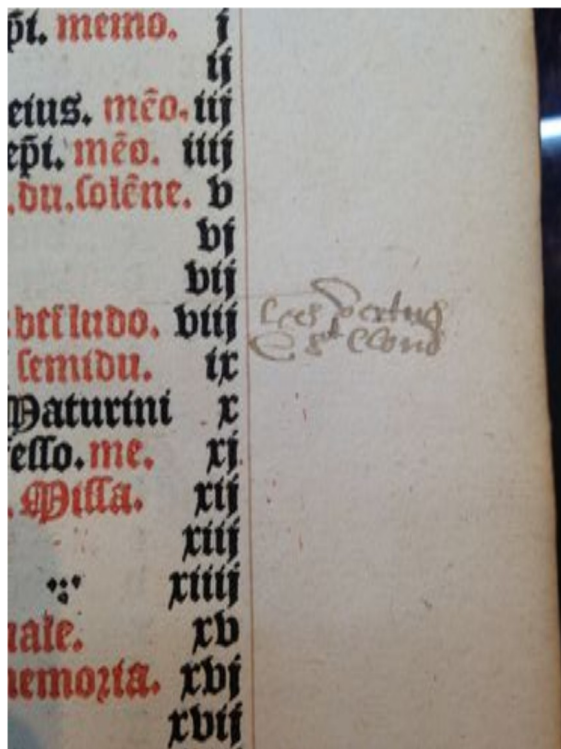 p̄i. memo. j
ij
eius. mēo. iij
ep̄i. mēo. iiij
.du.solēne. v
vj
vij
ludo. viij
semidu. ix
Maturini x
fesso. me. xj
. Missa. xij
xiij
xiiij
nale. xv
memoria. xvj
xvij
Les vertus
St Cloud